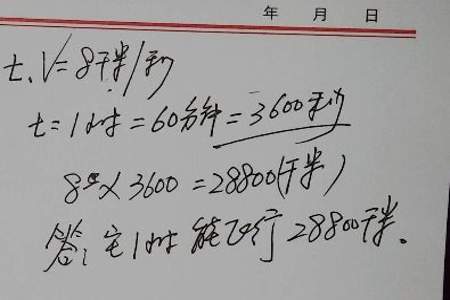 年 月 日
七、V=8千米/秒
t=1小时=60分钟=3600秒
8×3600=28800(千米)
答:它1小时能飞行28800千米.